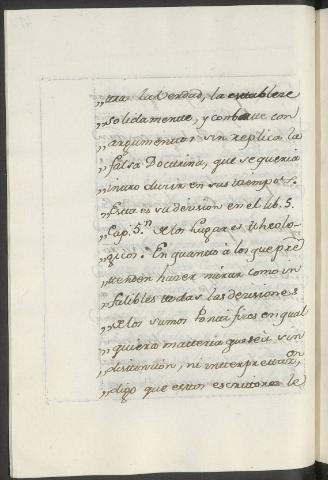 „tra la verdad, la establece
„solidamente, y combate con
„argumentos sin replica la
„falsa Doctrina, que se queria
„introducir en sus tiempos.
„Esta es su decision en el lib. 5.
„Cap. 5.º de los Lugares theolo-
„gicos. En quanto à los que pre
„tenden hacer mirar como in
„falibles todas las decisiones
„de los sumos Pontifices en qual
„quiera materia que sea sin
„distincion, ni interpretacion,
„digo que estos escritores le